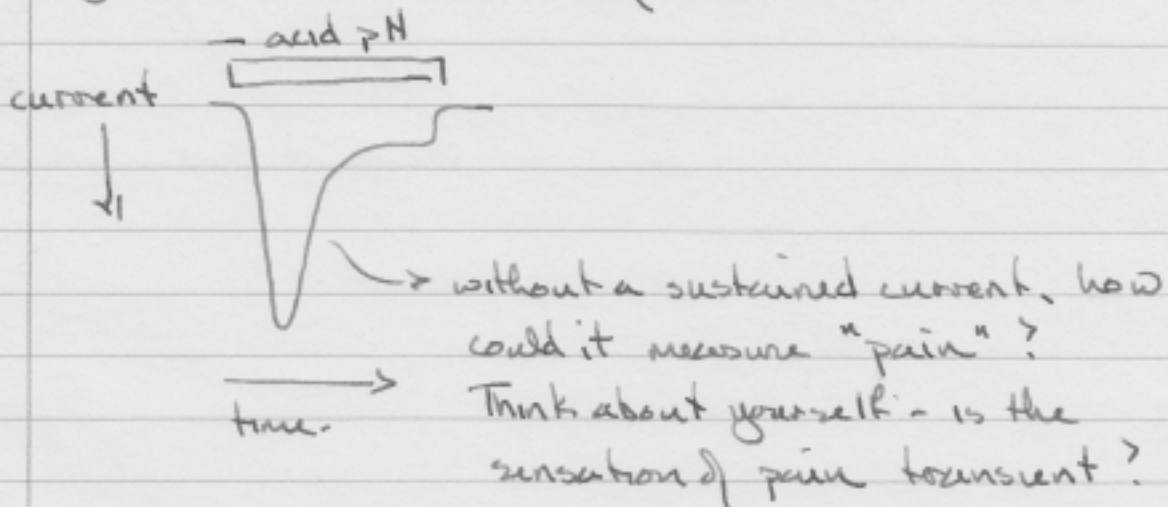 acid pH
current
without a sustained current, how
could it measure "pain"?
Think about yourself - is the
time.
sensation of pain transient?